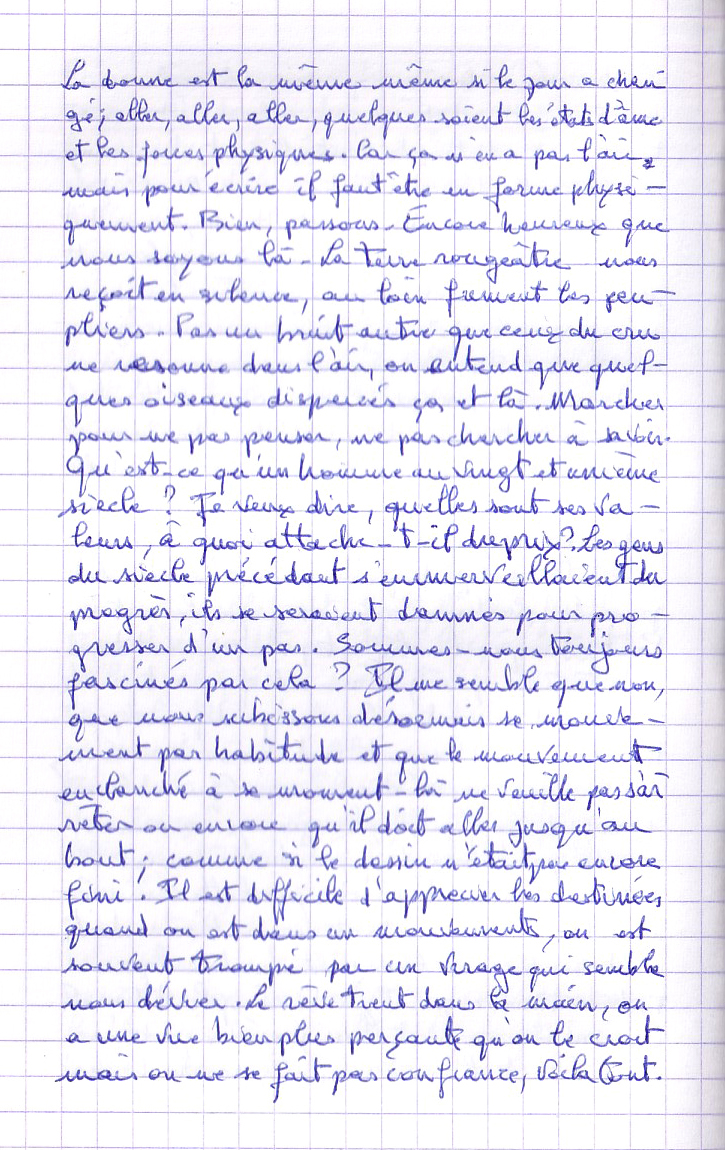 La donne est la même même si le jour a chan
gé; aller, aller, aller, quelques soient les états d'âme
et les forces physiques. Car ça n'en a pas l'air,
mais pour écrire il faut être en forme physi-
quement. Bien, passons. Encore heureux que
nous soyons là. La terre rougeâtre nous
reçoit en silence, au loin frement les peu-
pliers. Pas un bruit autre que ceux du cru
ne résonne dans l'air, on entend que quel-
ques oiseaux dispersés ça et là. Marcher
pour ne pas penser, ne pas chercher à savoir.
Qu'est-ce qu'un homme au vingt et unième
siècle? Je veux dire, quelles sont ses va-
leurs, à quoi attache-t-il du prix? Les gens
du siècle précédant s'emmerveillaient du
progrès, ils se seraient damnés pour pro-
gresser d'un pas. Sommes-nous toujours
fascinés par cela? Il me semble que non,
que nous subissons désormais se mouve-
ment par habitude et que le mouvement
enclanché à se moment-là ne veuille pas s'ar
rêter ou encore qu'il doit aller jusqu'au
bout; comme si le dessin n'était pas encore
fini! Il est difficile d'apprécier les destinées
quand on est dans un mouvements, on est
souvent trompé par un virage qui semble
nous dériver. Le rêve tient dans la main, on
a une vue bien plus perçante qu'on le croit
mais on ne se fait pas confiance, voilà tout.